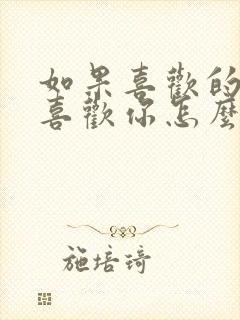 如果喜歡的
喜歡你怎麼
施培琦